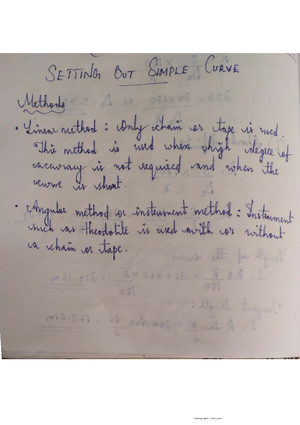 SETTING OUT SIMPLE CURVE
Methods
• Linear method : Only chain or tape is used.
This method is used when high degree of
accuracy is not required and when the
curve is short.
• Angular method or instrument method : Instrument
such as theodolite is used with or without
a chain or tape.